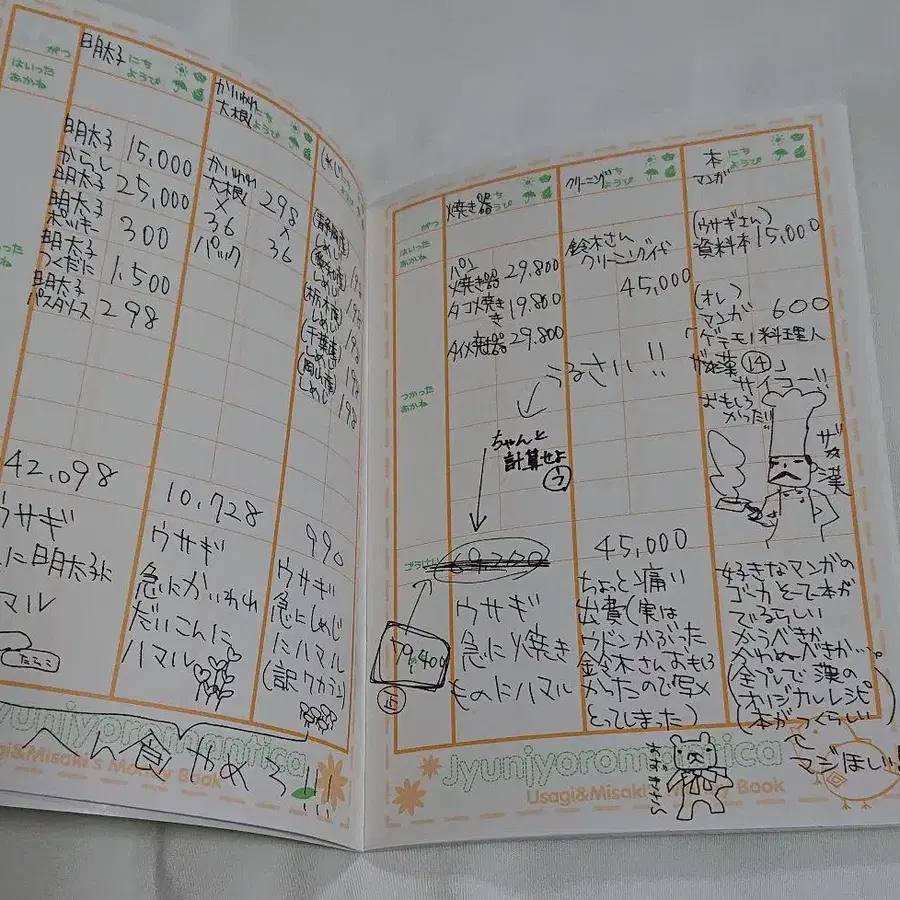 がつ
はいった
おかね
明太子
にち
ようび
明太子
からし
明太子
15,000
25,000
明太子
300
明太子
つくだに
1,500
明太子
パスタソース
298
42,098
ウサギ
急に明太子に
ハマル
たらこ
かいわれ
大根
にち
ようび
かいわれ
大根
298
×
36
パック
×
36
10,728
ウサギ
急にかいわれ
だいこんに
ハマル
しめじ
しめじ
198
しめじ
198
(栃木産)
しめじ
198
(千葉産)
しめじ
198
(岡山産)
しめじ
198
990
ウサギ
急にしめじ
にハマル
(訳ワカラン)
へん食やめろ!!
Jyunjyoromantica
Usagi&Misaki's Money Book
がつ
はいった
おかね
つかった
おかね
ごうけい
焼き器
にち
ようび
パン
焼き器
29,800
タコ焼き
き
19,800
タイ焼き器
29,800
うるさい!!
ちゃんと
計算せよ
ウ
69200
79,400
正
ウサギ
急に焼き
ものにハマル
クリーニング
にち
ようび
鈴木さん
クリーニング代
45,000
45,000
ちょっと痛い
出費(実は
ウドンかぶった
鈴木さんおもし
かったので写メ
とってしまった)
すずきさん
本
マンガ
にち
ようび
(ウサギさん)
資料本
15,000
(オレ)
マンガ
600
「ゲテモノ料理人
ザ・漢⑭」
サイコー!!
おもしろ
かった!!
ザ・漢
好きなマンガの
ゴーカとくて本が
でるらしい
かうべきか
かわぬべきか…。
(全プレで漢の
オリジナルレシピ
本がつくらしい)
と
マジほしい!
Jyunjyoromantica
Usagi&Misaki's Money Book